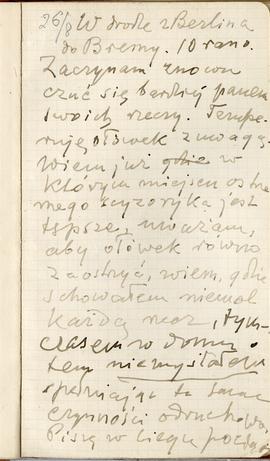 26/8 W drodze z Berlina
do Bremy. 10 rano.
Zaczynam znowu
czuć się bardziej panem
swoich rzeczy. Tempe-
ruję ołówek z uwagą.
Wiem już gdzie w
którym miejscu ostrze
mego scyzoryka jest
tępsze, uważam,
aby ołówek równo
zaostrzyć, wiem, gdzie
schowałem niemal
każdą rzecz, tym-
czasem w domu
tem nie myślałem
spełniając te
czynności odruchowo.
Piszę w ciągu